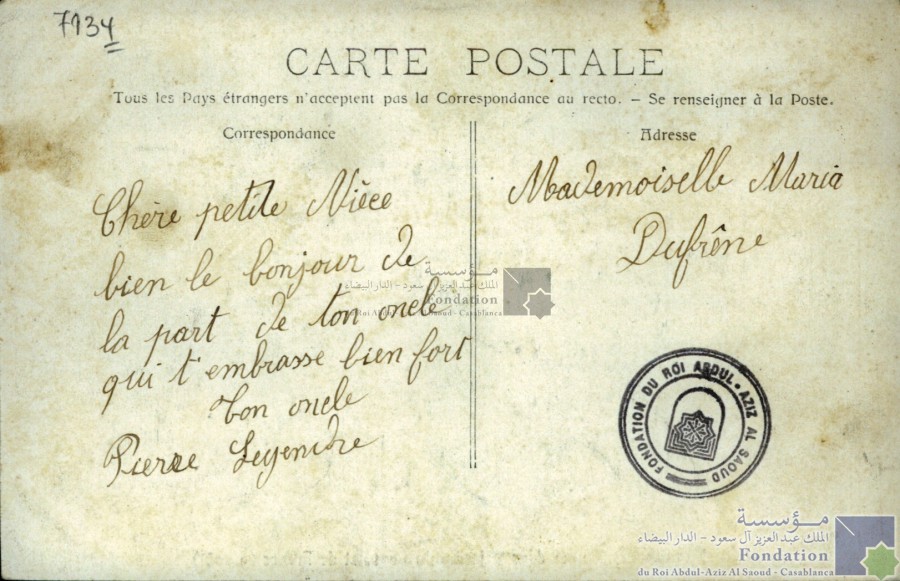 7134
CARTE POSTALE
Tous les Pays étrangers n'acceptent pas la Correspondance au recto. – Se renseigner à la Poste.
Correspondance
Chère petite Nièce
bien le bonjour de
la part de ton oncle
qui t'embrasse bien fort
ton oncle
Pierre Legendre
Adresse
Mademoiselle Maria
Dufrêne
مؤسسة
الملك عبد العزيز آل سعود - الدار البيضاء
Fondation
du Roi Abdul-Aziz Al Saoud - Casablanca
FONDATION DU ROI ABDUL-AZIZ AL SAOUD
مؤسسة
الملك عبد العزيز آل سعود - الدار البيضاء
Fondation
du Roi Abdul-Aziz Al Saoud - Casablanca